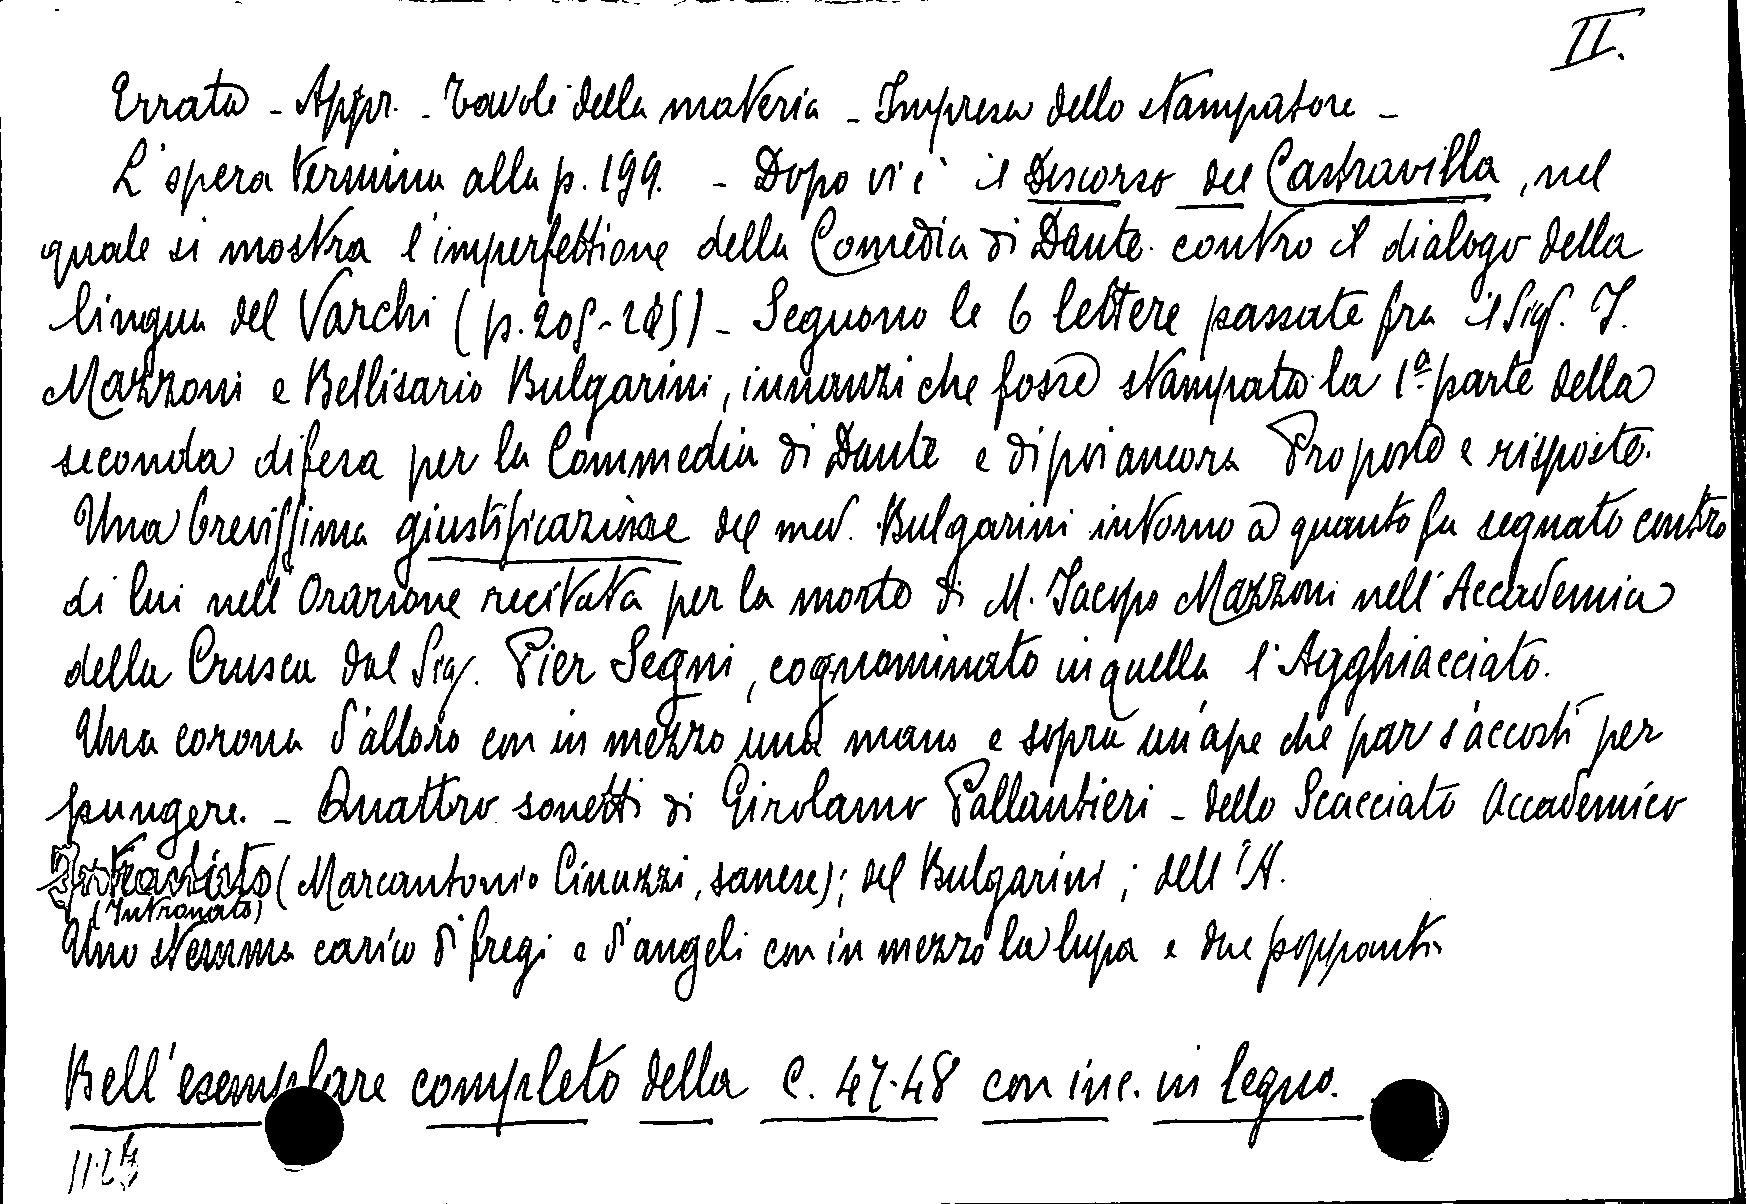 II.
Errata - Appr. - Tavole della materia - Impresa dello stampatore -
L'opera termina alla p. 199. - Dopo vi è il Discorso del Castravilla, nel
quale si mostra l'imperfettione della Comedia di Dante contro il dialogo della
lingua del Varchi (p. 205-2 ) - Seguono le 6 lettere passate fra il Sig. J.
Mazzoni e Bellisario Bulgarini, innanzi che fosse stampata la 1ª parte della
seconda difesa per la Commedia di Dante e di poi ancora Proposte e risposte.
Una brevissima giustificazione del med. Bulgarini intorno a quanto fu segnato contro
di lui nell'Orazione recitata per la morte di M. Jacopo Mazzoni nell'Accademia
della Crusca dal Sig. Pier Segni, cognominato in quella l'Agghiacciato.
Una corona d'alloro con in mezzo una mano e sopra un'ape che par s'accosti per
pungere. - Quattro sonetti di Girolamo Pallantieri - dello Scacciato Accademico
(Marcantonio Cinuzzi, sanese); del Bulgarini; dell'A.
(Intronato)
Uno stemma carico di fregi e d'angeli con in mezzo la lupa e due poppanti
Bell'esemplare completo della C. 47-48 con inc. in legno.